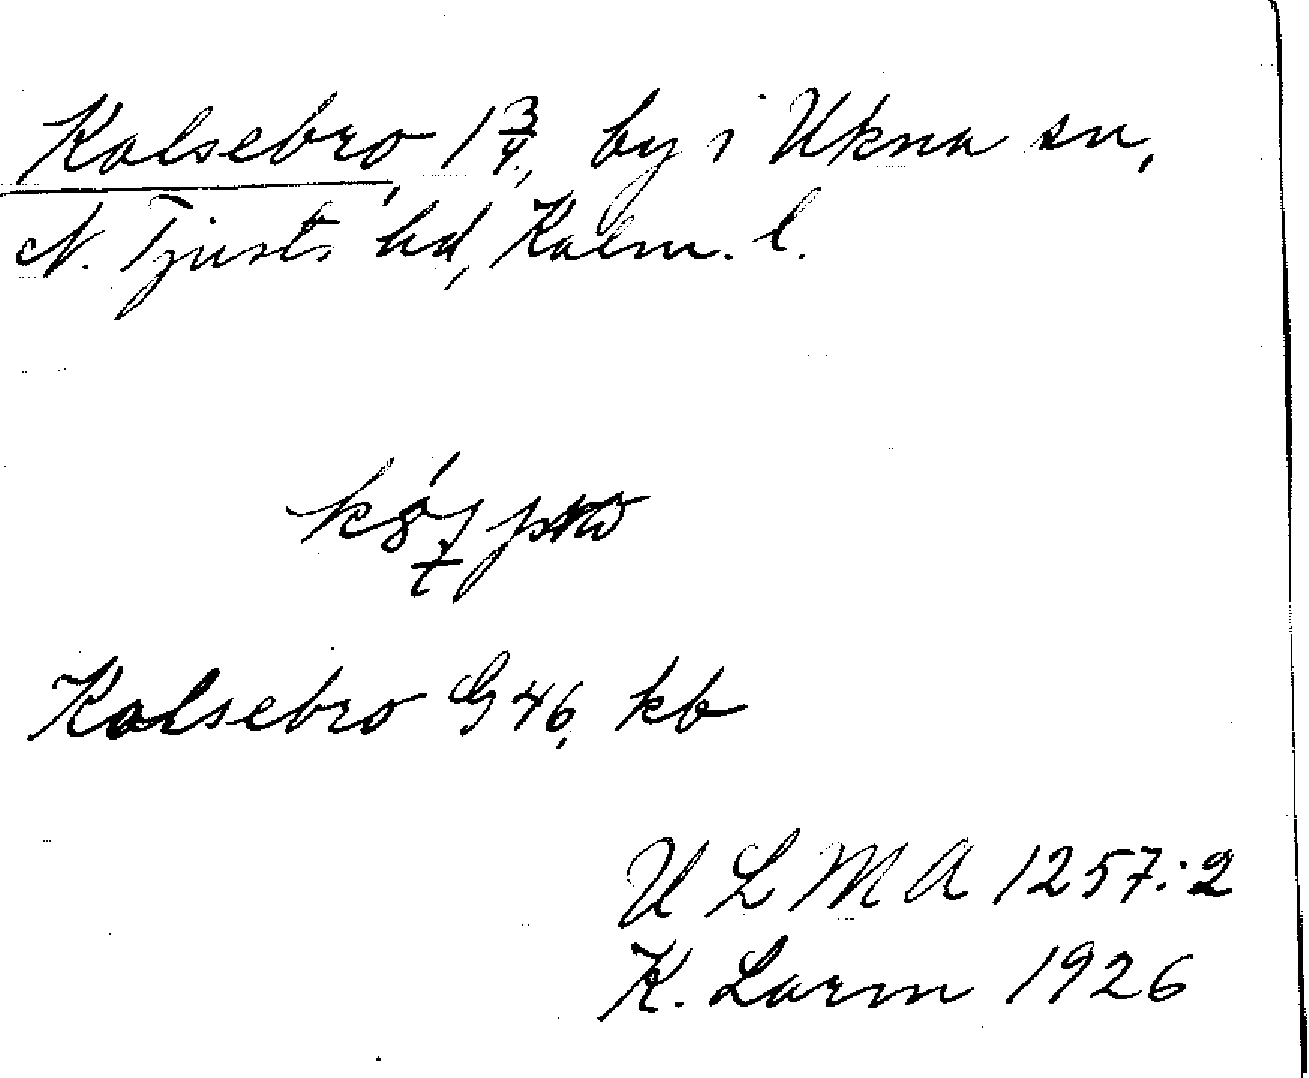 Kalsebro, 1 3/4, by i Ukna sn,
N. Tjusts hd, Kalm. l.
Kalsebro G 46, kb
U L M A 1257:2
K. Larm 1926